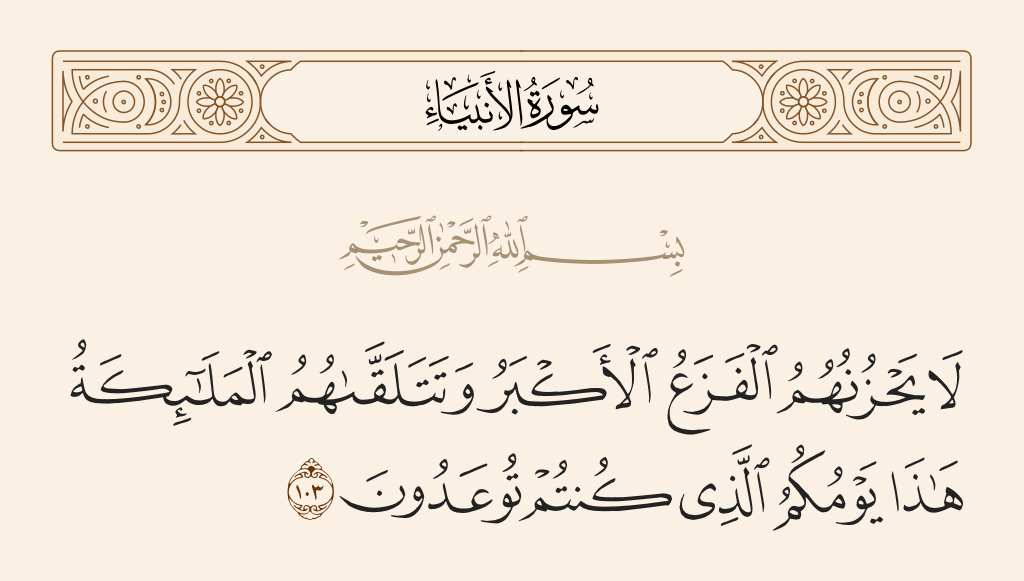 سُورَةُ الأَنبِيَاءِ
بِسْمِ ٱللَّهِ ٱلرَّحْمَٰنِ ٱلرَّحِيمِ
لَا يَحْزُنُهُمُ ٱلْفَزَعُ ٱلْأَكْبَرُ وَتَتَلَقَّىٰهُمُ ٱلْمَلَـٰٓئِكَةُ
هَـٰذَا يَوْمُكُمُ ٱلَّذِى كُنتُمْ تُوعَدُونَ ١٠٣